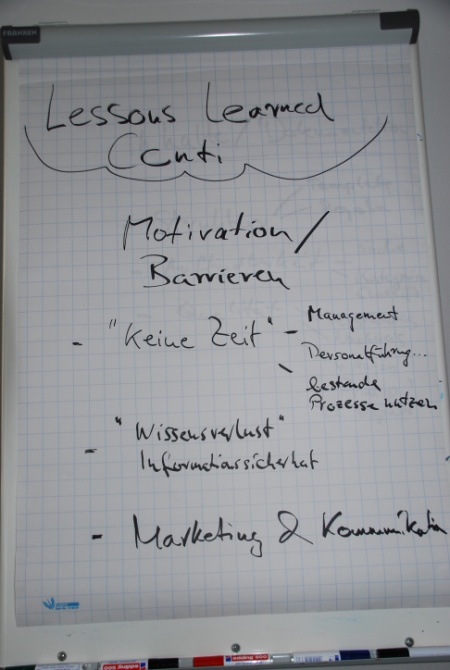 FRANKEN
Lessons Learned
Conti
Motivation/
Barrieren
- "Keine Zeit" - Management
Personalführung...
bestehende
Prozesse nutzen
- "Wissensverlust"
Informationssicherheit
- Marketing & Kommunikation